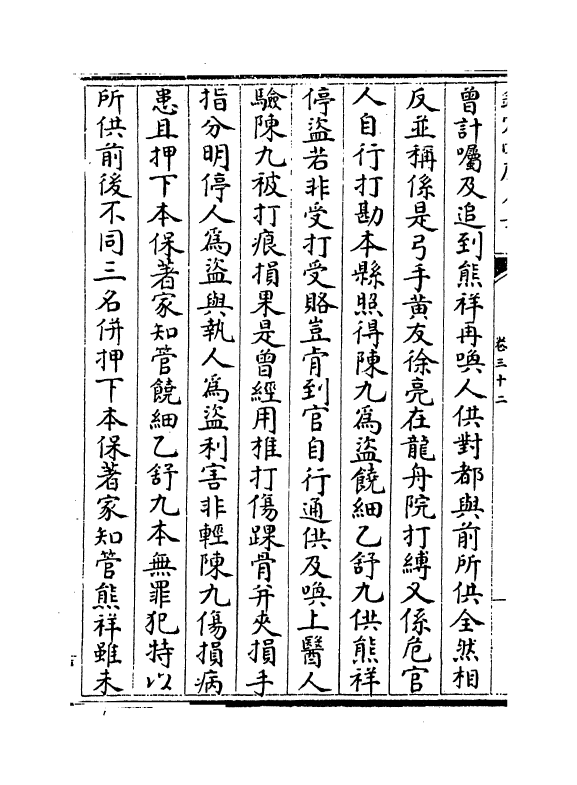 卷三十二
曾計囑及追到熊祥再喚人供對都與前所供全然相
反並稱係是弓手黄友徐亮在龍舟院打縛又係危官
人自行打勘本縣照得陳九為盜饒細乙舒九供熊祥
停盜若非受打受賂豈肯到官自行通供及喚上醫人
驗陳九被打痕損果是曾經用椎打傷踝骨并夾損手
指分明停人爲盜與執人爲盜利害非輕陳九傷損病
患且押下本保著家知管饒細乙舒九本無罪犯特以
所供前後不同三名併押下本保著家知管熊祥雖未